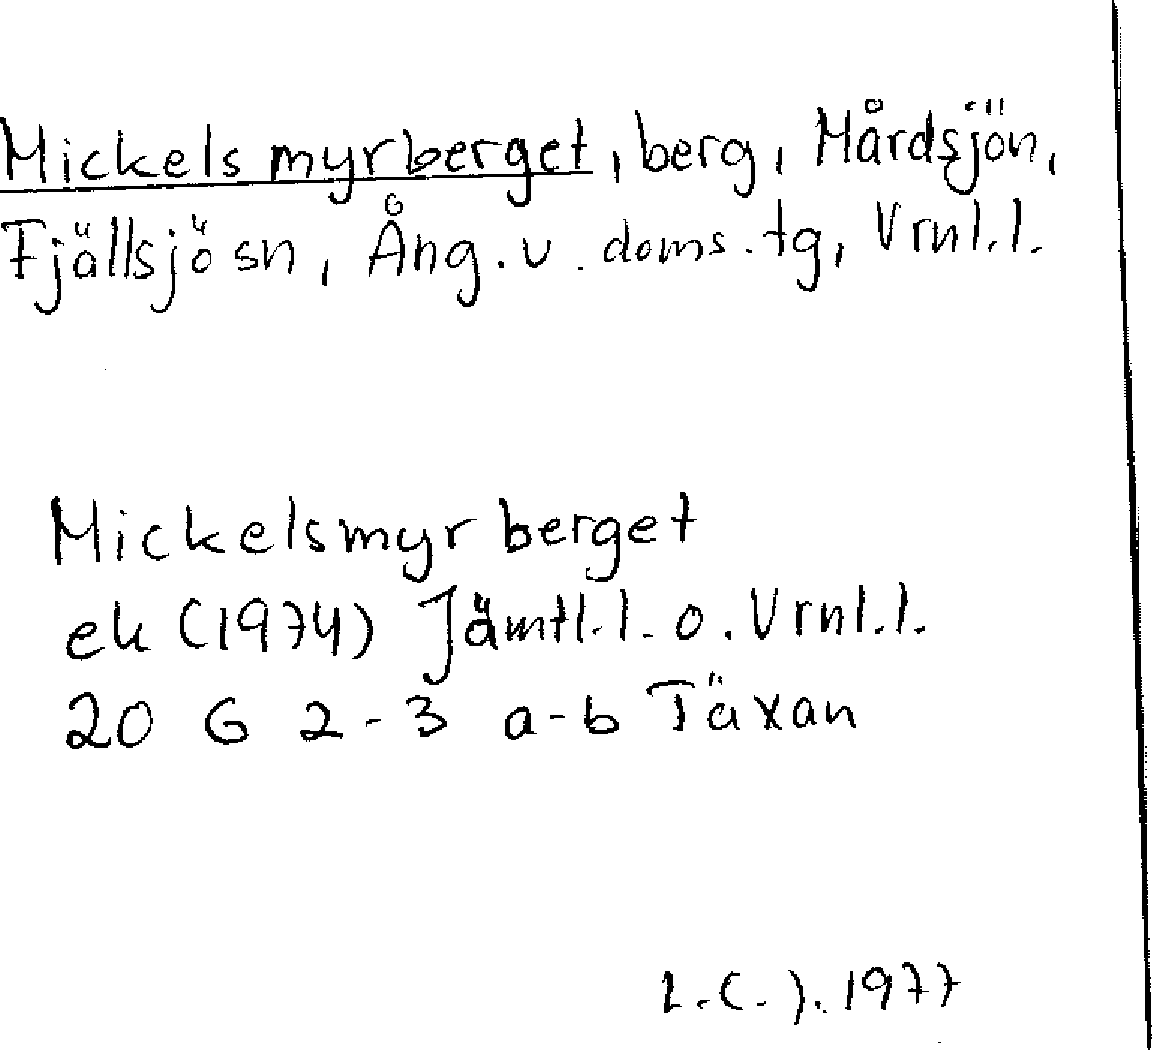 Mickelsmyrberget, berg, Mårdsjön,
Fjällsjö sn, Ång. v. doms. tg, Vrnl.l.
Mickelsmyrberget
ek (1974) Jämtl.l. o. Vrnl.l.
20 G 2-3 a-b Täxan
1977